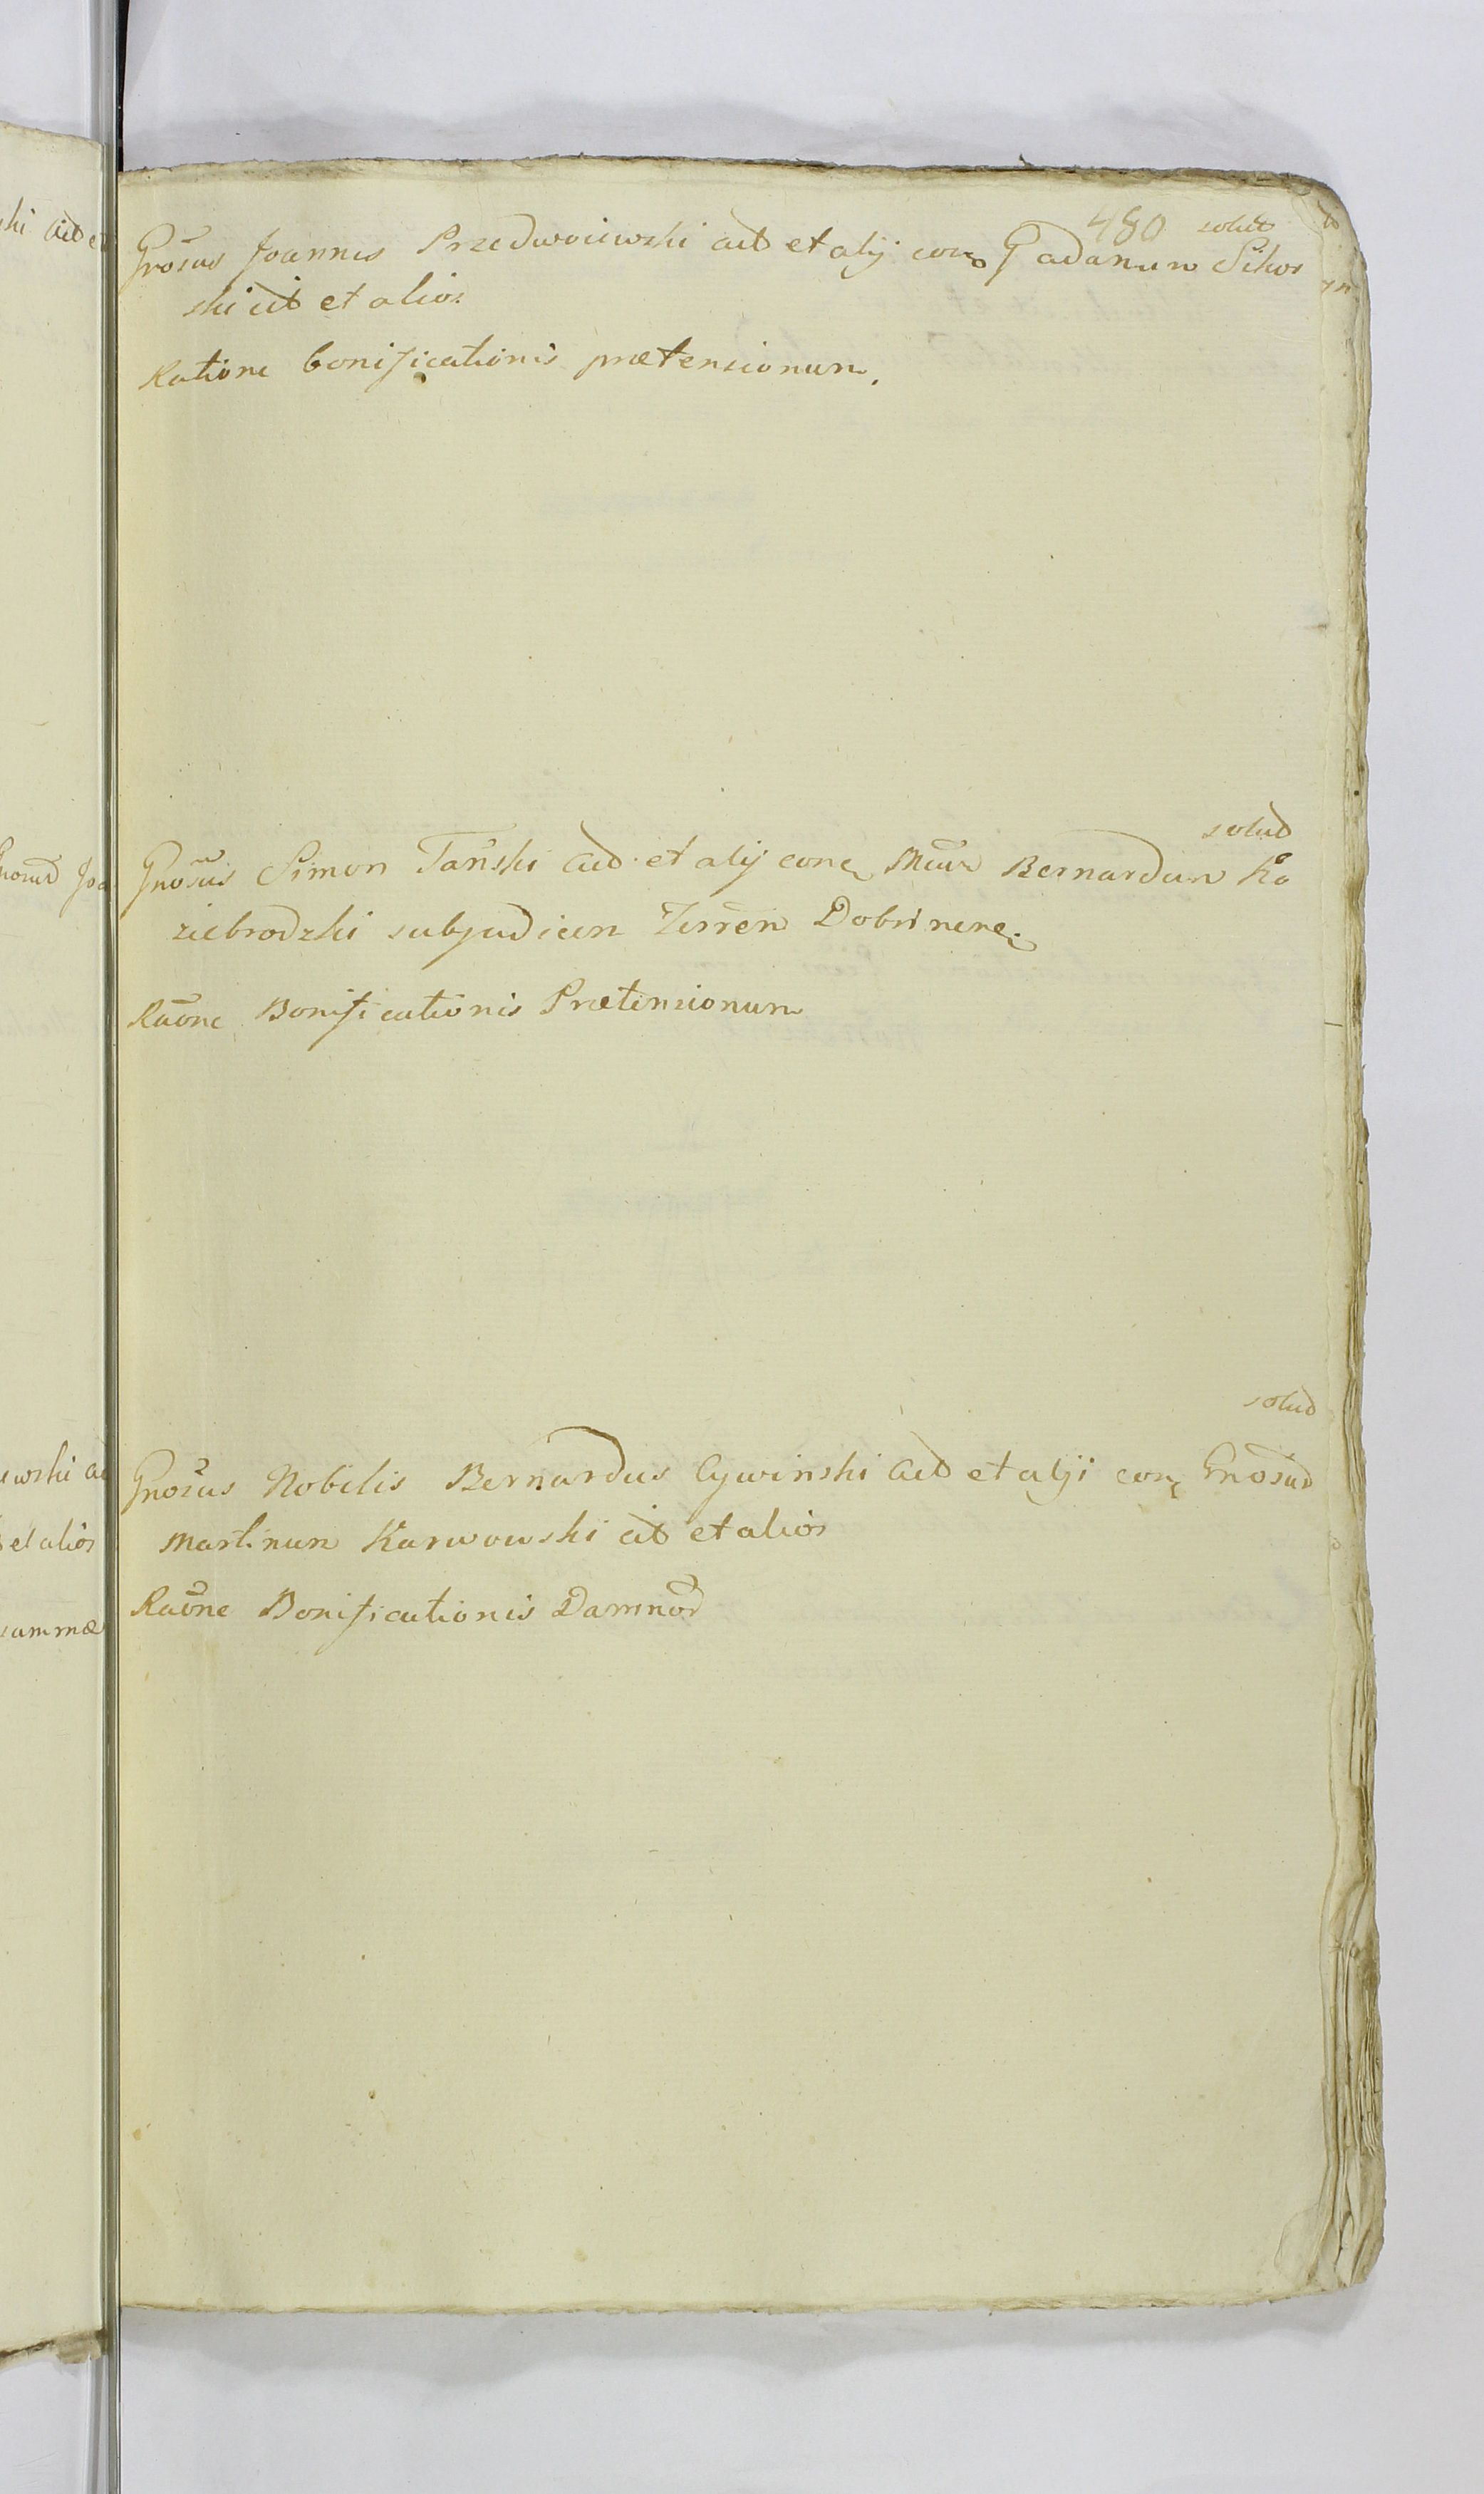 480 solut
Gnosus Joannes Przedwoiewski act et alij con G adamum Sikor
ski cit et alios
Ratione bonificationis prætensionum.
solut
Gnosus Simon Tański act et alij con Mcum Bernardum Ko
ziebrodzki subjudicem Terren Dobrinens
Raone Bonificationis Prætensionum
solut
Gnosus Nobilis Bernardus Cywinski act et alji con Gnosum
Martinum Karwowski cit et alios
Raone Bonificationis Damnor